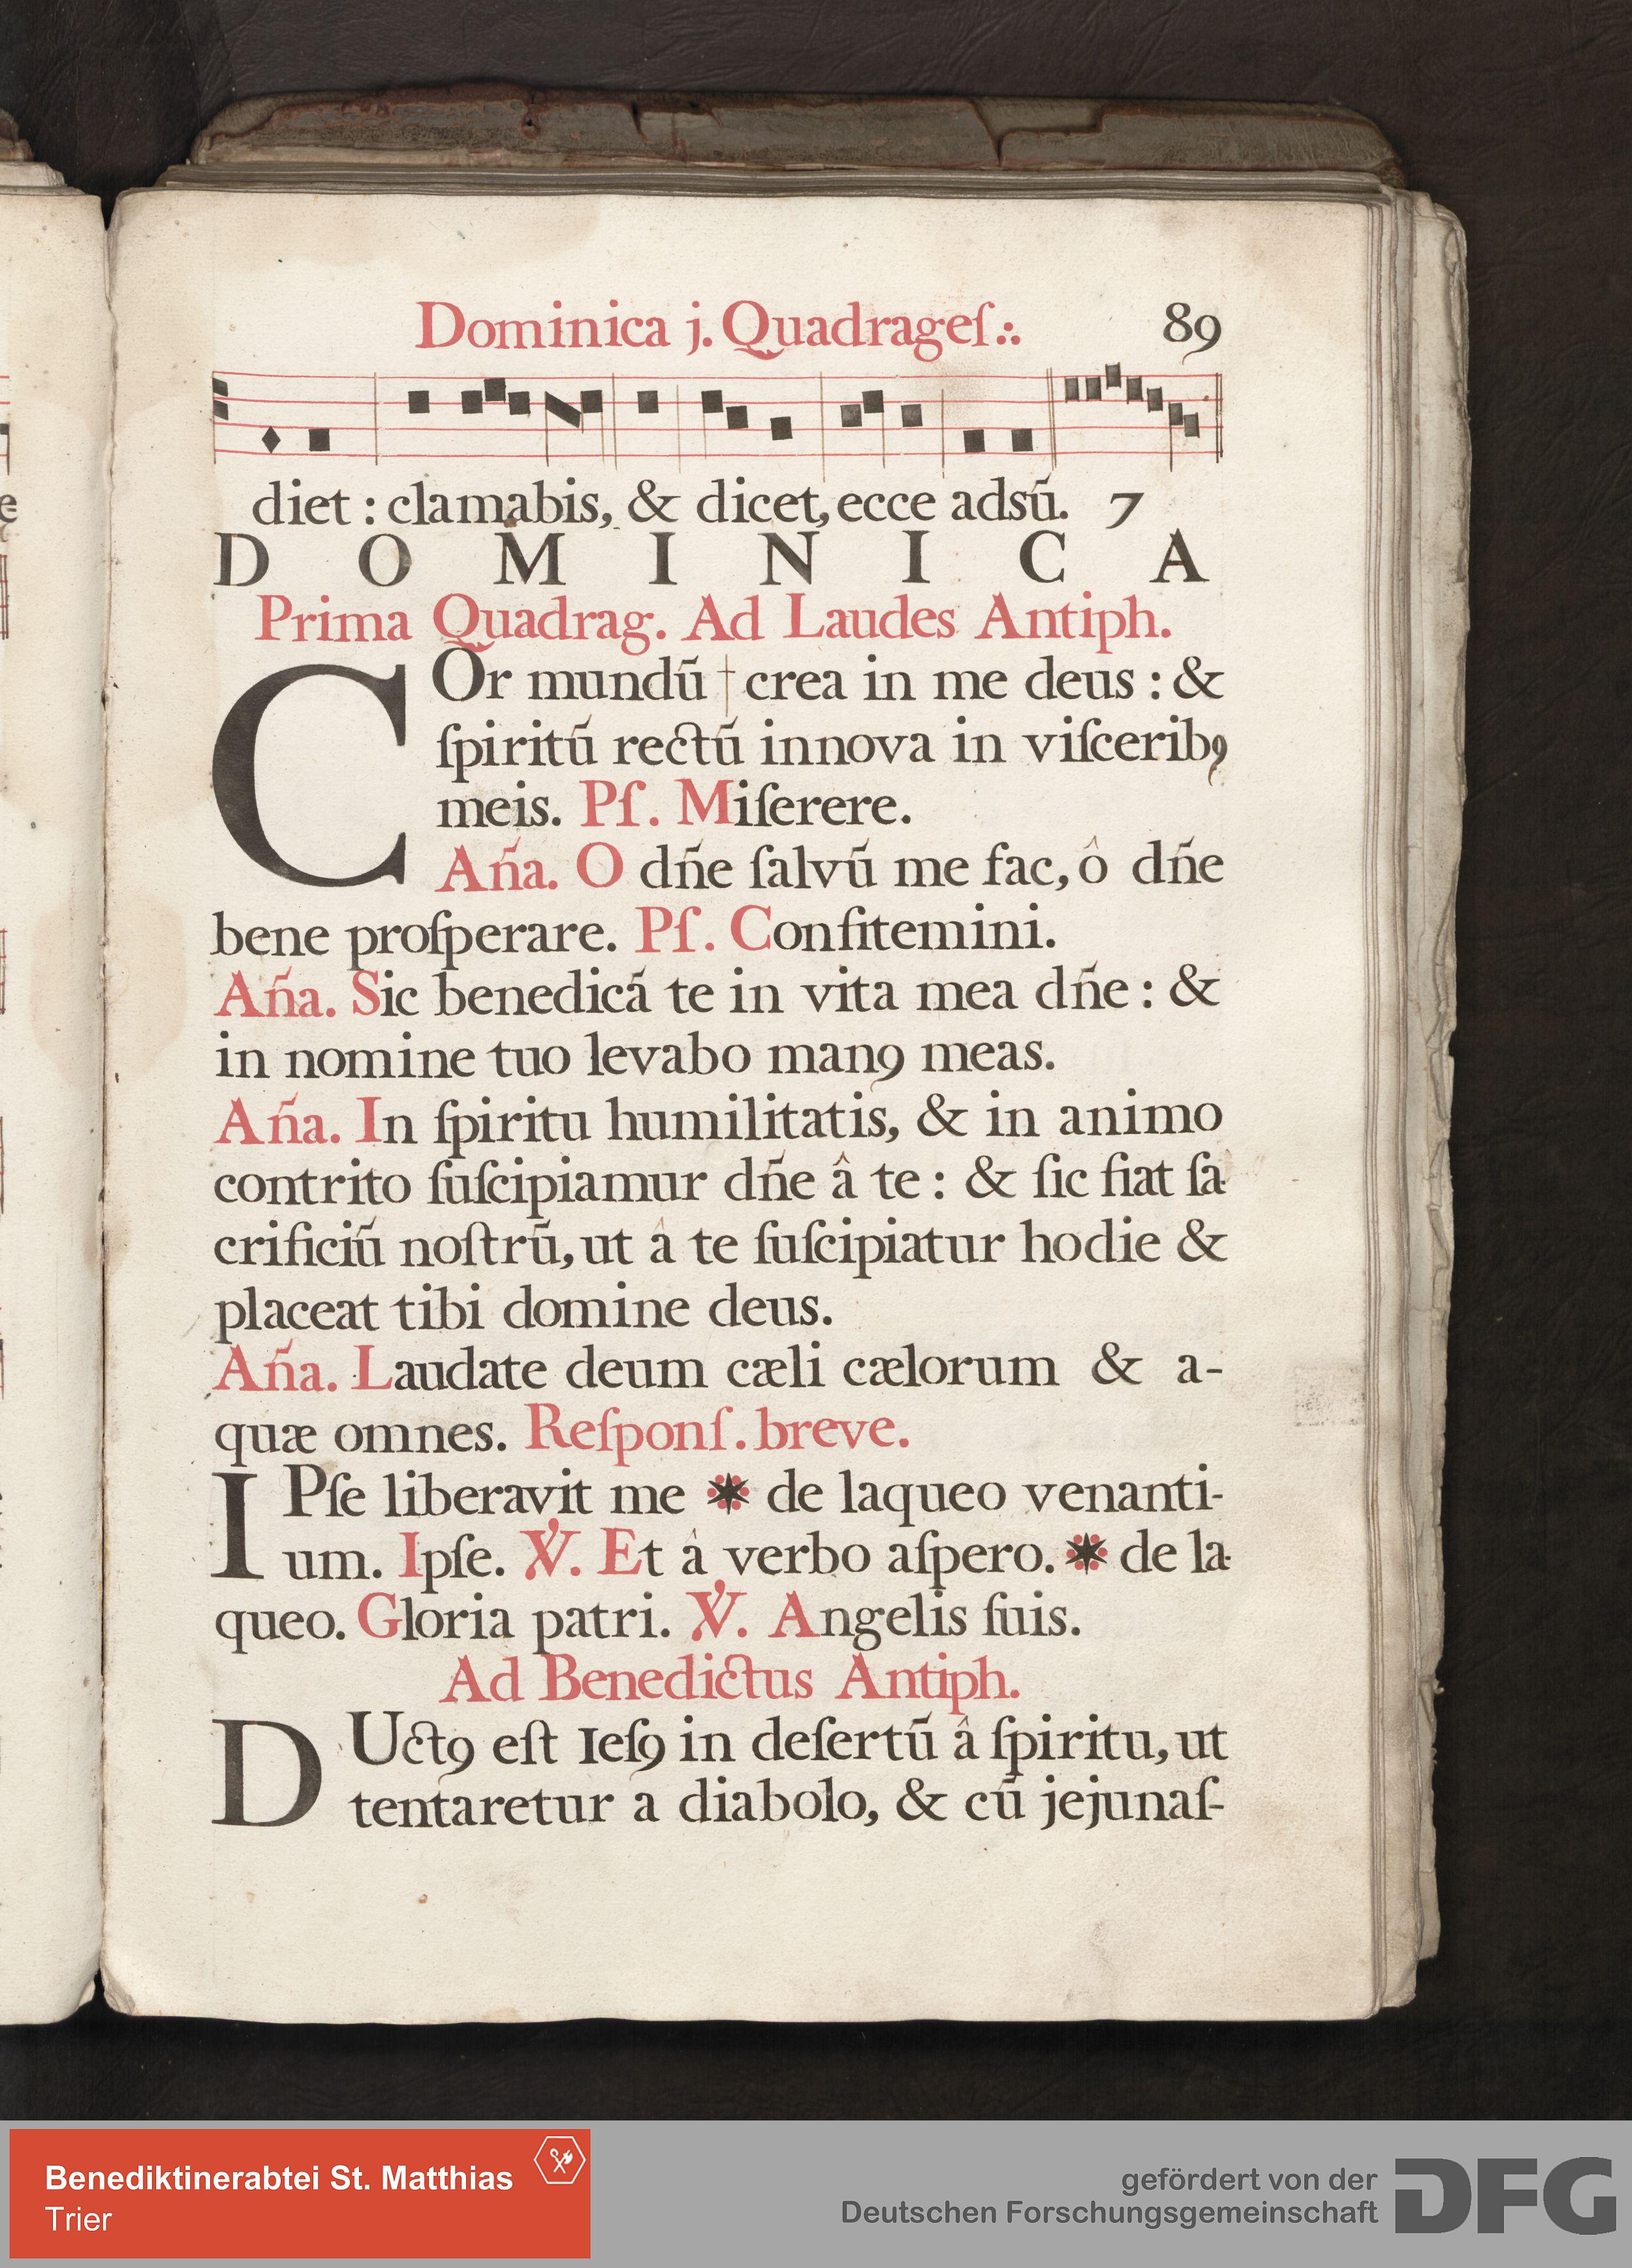 Dominica j. Quadrageſ.:. 89
diet : clamabis, & dicet, ecce adsū. 7
D O M I N I C A
Prima Quadrag. Ad Laudes Antiph.
COr mundū † crea in me deus : &
ſpiritū rectū innova in viſceribꝯ
meis. Pſ. Miſerere.
An̄a. O dn̄e ſalvū me fac, ô dn̄e
bene proſperare. Pſ. Confitemini.
An̄a. Sic benedicā te in vita mea dn̄e : &
in nomine tuo levabo manꝯ meas.
An̄a. In ſpiritu humilitatis, & in animo
contrito ſuſcipiamur dn̄e â te : & ſic fiat ſa-
crificiū noſtrū, ut â te ſuſcipiatur hodie &
placeat tibi domine deus.
An̄a. Laudate deum cæli cælorum & a-
quæ omnes. Reſponſ. breve.
IPſe liberavit me * de laqueo venanti-
um. Ipſe. ℣. Et â verbo aſpero. * de la-
queo. Gloria patri. ℣. Angelis ſuis.
Ad Benedictus Antiph.
DUctꝯ eſt Ieſꝯ in deſertū â ſpiritu, ut
tentaretur a diabolo, & cū jejunaſ-
Benediktinerabtei St. Matthias
Trier
gefördert von der
Deutschen Forschungsgemeinschaft
DFG